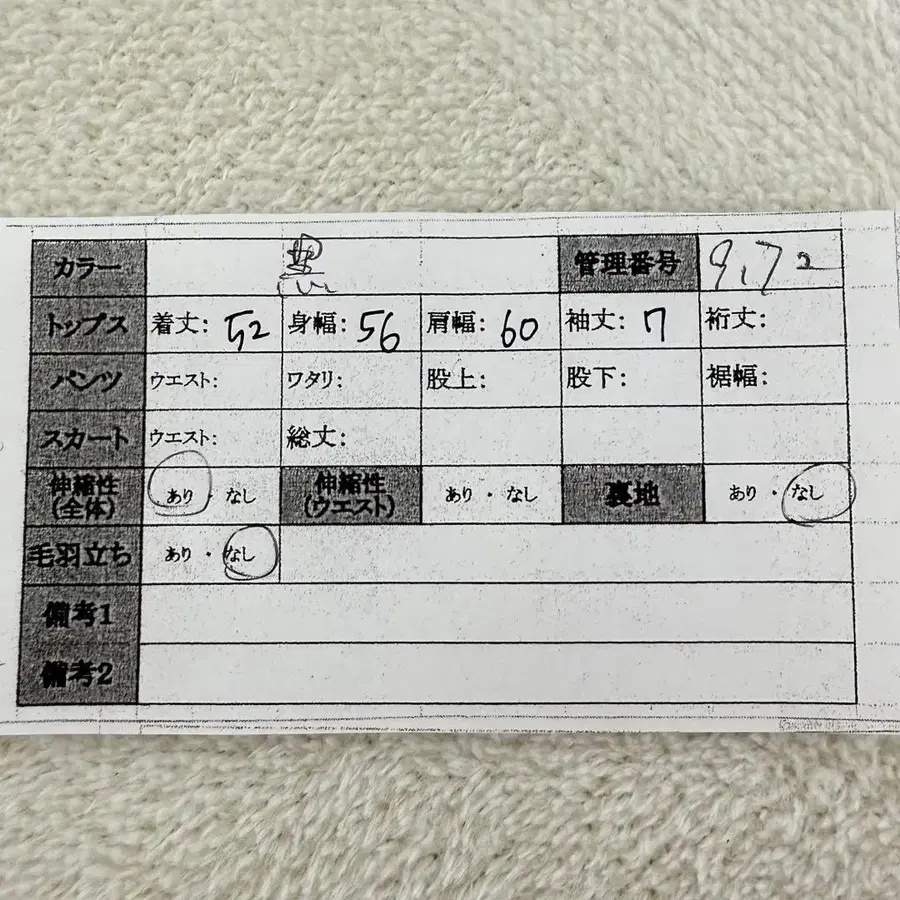 カラー 黒 管理番号 9.72
トップス 着丈: 52 身幅: 56 肩幅: 60 袖丈: 7 裄丈:
パンツ ウエスト: ワタリ: 股上: 股下: 裾幅:
スカート ウエスト: 総丈:
伸縮性(全体) あり・なし 伸縮性(ウエスト) あり・なし 裏地 あり・なし
毛羽立ち あり・なし
備考1
備考2